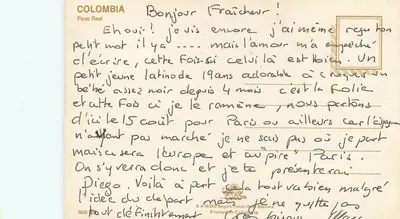 COLOMBIA
Pavo Real
Bonjour Fraîcheur!
Eh oui! je vis encore j'ai même reçu ton
petit mot il y a .... mais l'amour m'a empêché
d'écrire, cette fois-ci celui là est bien. Un
petit jeune latino de 19ans adorable à croquer un
bébé assez noir depuis 4 mois c'est la folie
et cette fois ci je le ramène, nous partons
d'ici le 15 août pour Paris ou ailleurs car l'Espagne
n'ayant pas marché je ne sais pas où je pars
mais ce sera l'Europe et au "pire" Paris.
On s'y verra donc et je te présenterai
Diego. Voilà à part cela tout va bien malgré
l'idée du départ mais je ne quitte pas
tout définitivement
Gros bisous